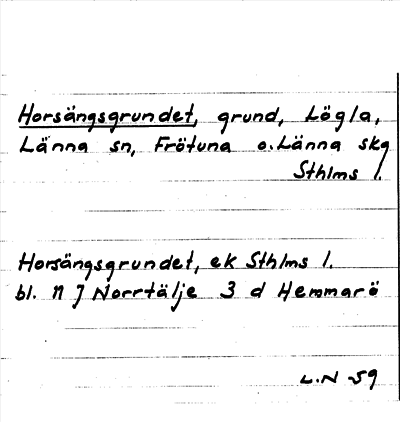 Horsängsgrundet, grund, Lögla,
Länna sn, Frötuna o. Länna skg
Sthlms l.
Horsängsgrundet, ek Sthlms l.
bl. 11 J Norrtälje 3 d Hemmarö
L.N 59